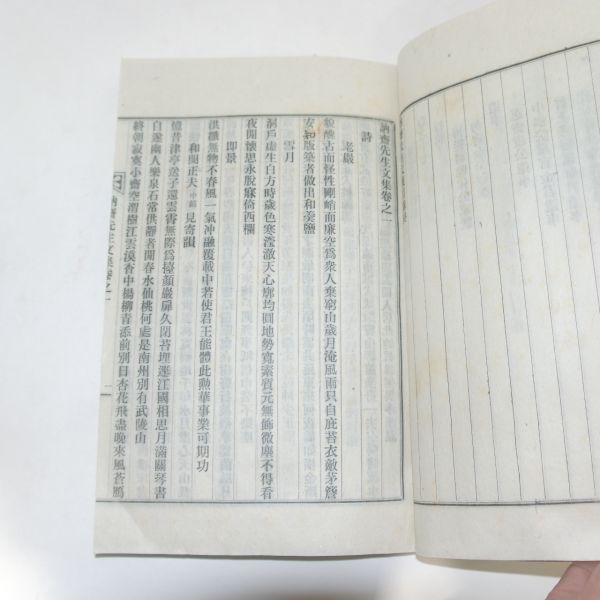 訥齋先生文集卷之一
詩
老巖
貌醜古而怪性剛峭而廉空爲衆人棄窮山歲月淹風雨只自庇苔衣敵茅簷
安知版築者做出和羹鹽
雪月
洞戶虛生白方時歲色寒瀅澈天心廓均圓地勢寬素質元無飾微塵不得看
夜閒懷思永脫寐倚西欄
即景
洪纖無物不春風一氣冲融覆載中若使君王能體此勳華事業可期功
和閔正夫 見寄韻
憶昔津亭送子還雲霄無際爲擡顔巖扉久閉苔埋逕江國相思月滿關琴書
自邃幽人樂泉石常供靜者閒春水仙桃何處是南州別有武陵山
終朝寂寞小齋空渭樹江雲漠杳中楊柳靑添前別目杏花飛盡晚來風蒼鴈
訥齋先生文集卷之一
一